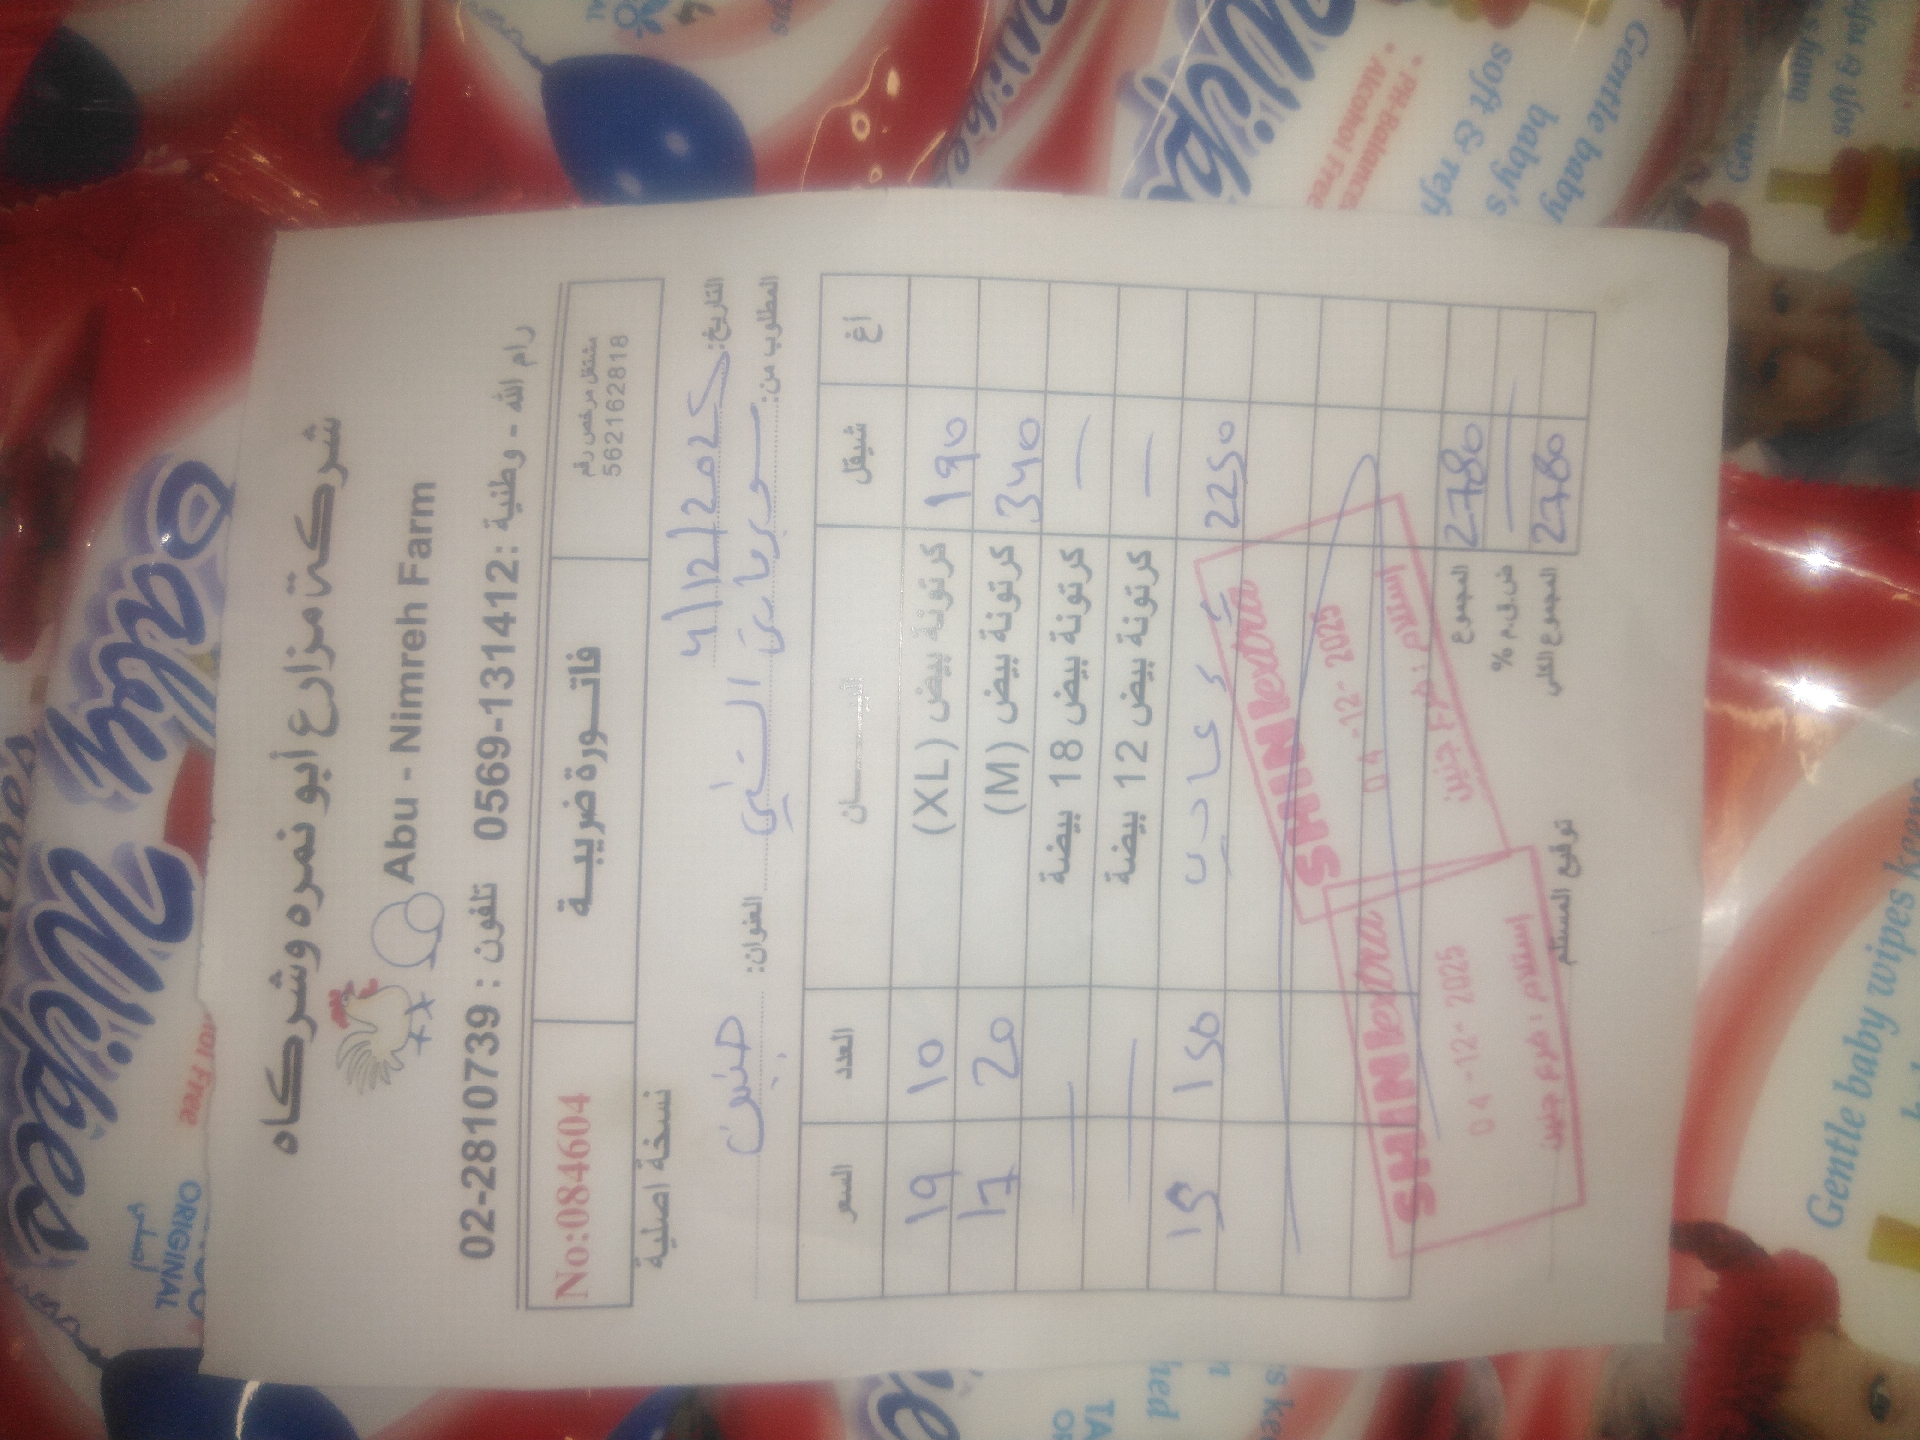 شركة مزارع أبو نمره وشركاه
Abu - Nimreh Farm
رام الله - وطنية : 0569-131412 تلفون : 02-2810739
مشتغل مرخص رقم
562162818
فاتورة ضريبية
No:084604
نسخة اصلية
التاريخ: 4/12/2025
المطلوب من: العنوان: جنين
أغ شيقل البيان العدد السعر
190 كرتونة بيض (XL) 10 19
340 كرتونة بيض (M) 20 17
— كرتونة بيض 18 بيضة — —
— كرتونة بيض 12 بيضة — —
2250 عادي 150 15
2780 المجموع
— ض.ق.م %
2780 المجموع الكلي
توقيع المستلم
SHINI extra
04 -12- 2025
استلام : فرع جنين
SHINI extra
04 -12- 2025
استلام : فرع جنين
Daley
Wipes
ORIGINAL
Gentle baby wipes keeps
Gentle baby
baby's
soft & refr
• PH-Balanced
• Alcohol Free